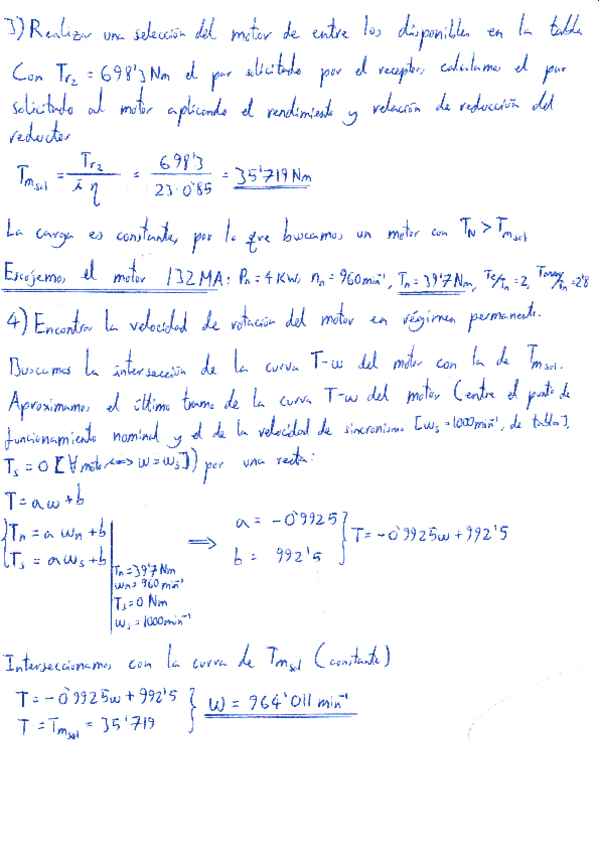 3) Realizar una selección del motor de entre los disponibles en la tabla
Con Tr₂ = 698'3 Nm el par solicitado por el receptor, calculamos el par
solicitado al motor aplicando el rendimiento y relación de reducción del
reductor
Tm_sol = Tr₂ / i η = 698'3 / 23·0'85 = 35'719 Nm
La carga es constante, por lo que buscamos un motor con T_N > Tm_sol
Escojemos el motor 132MA: Pn = 4 KW, nn = 960 min⁻¹, Tn = 39'7 Nm, Te/Tn = 2, Tmax/Tn = 2'8
4) Encontrar la velocidad de rotación del motor en régimen permanente.
Buscamos la intersección de la curva T-w del motor con la de Tm_sol.
Aproximamos el último tramo de la curva T-w del motor (entre el punto de
funcionamiento nominal y el de la velocidad de sincronismo [ws = 1000 min⁻¹, de tabla],
Ts = 0 [∀ motor ⟺ w = ws]) por una recta:
T = a w + b
{Tn = a wn + b
{Ts = a ws + b
Tn = 39'7 Nm
wn = 960 min⁻¹
Ts = 0 Nm
ws = 1000 min⁻¹
⟹ a = -0'9925
b = 992'5
} T = -0'9925w + 992'5
Interseccionamos con la curva de Tm_sol (constante)
T = -0'9925w + 992'5
T = Tm_sol = 35'719
} w = 964'011 min⁻¹